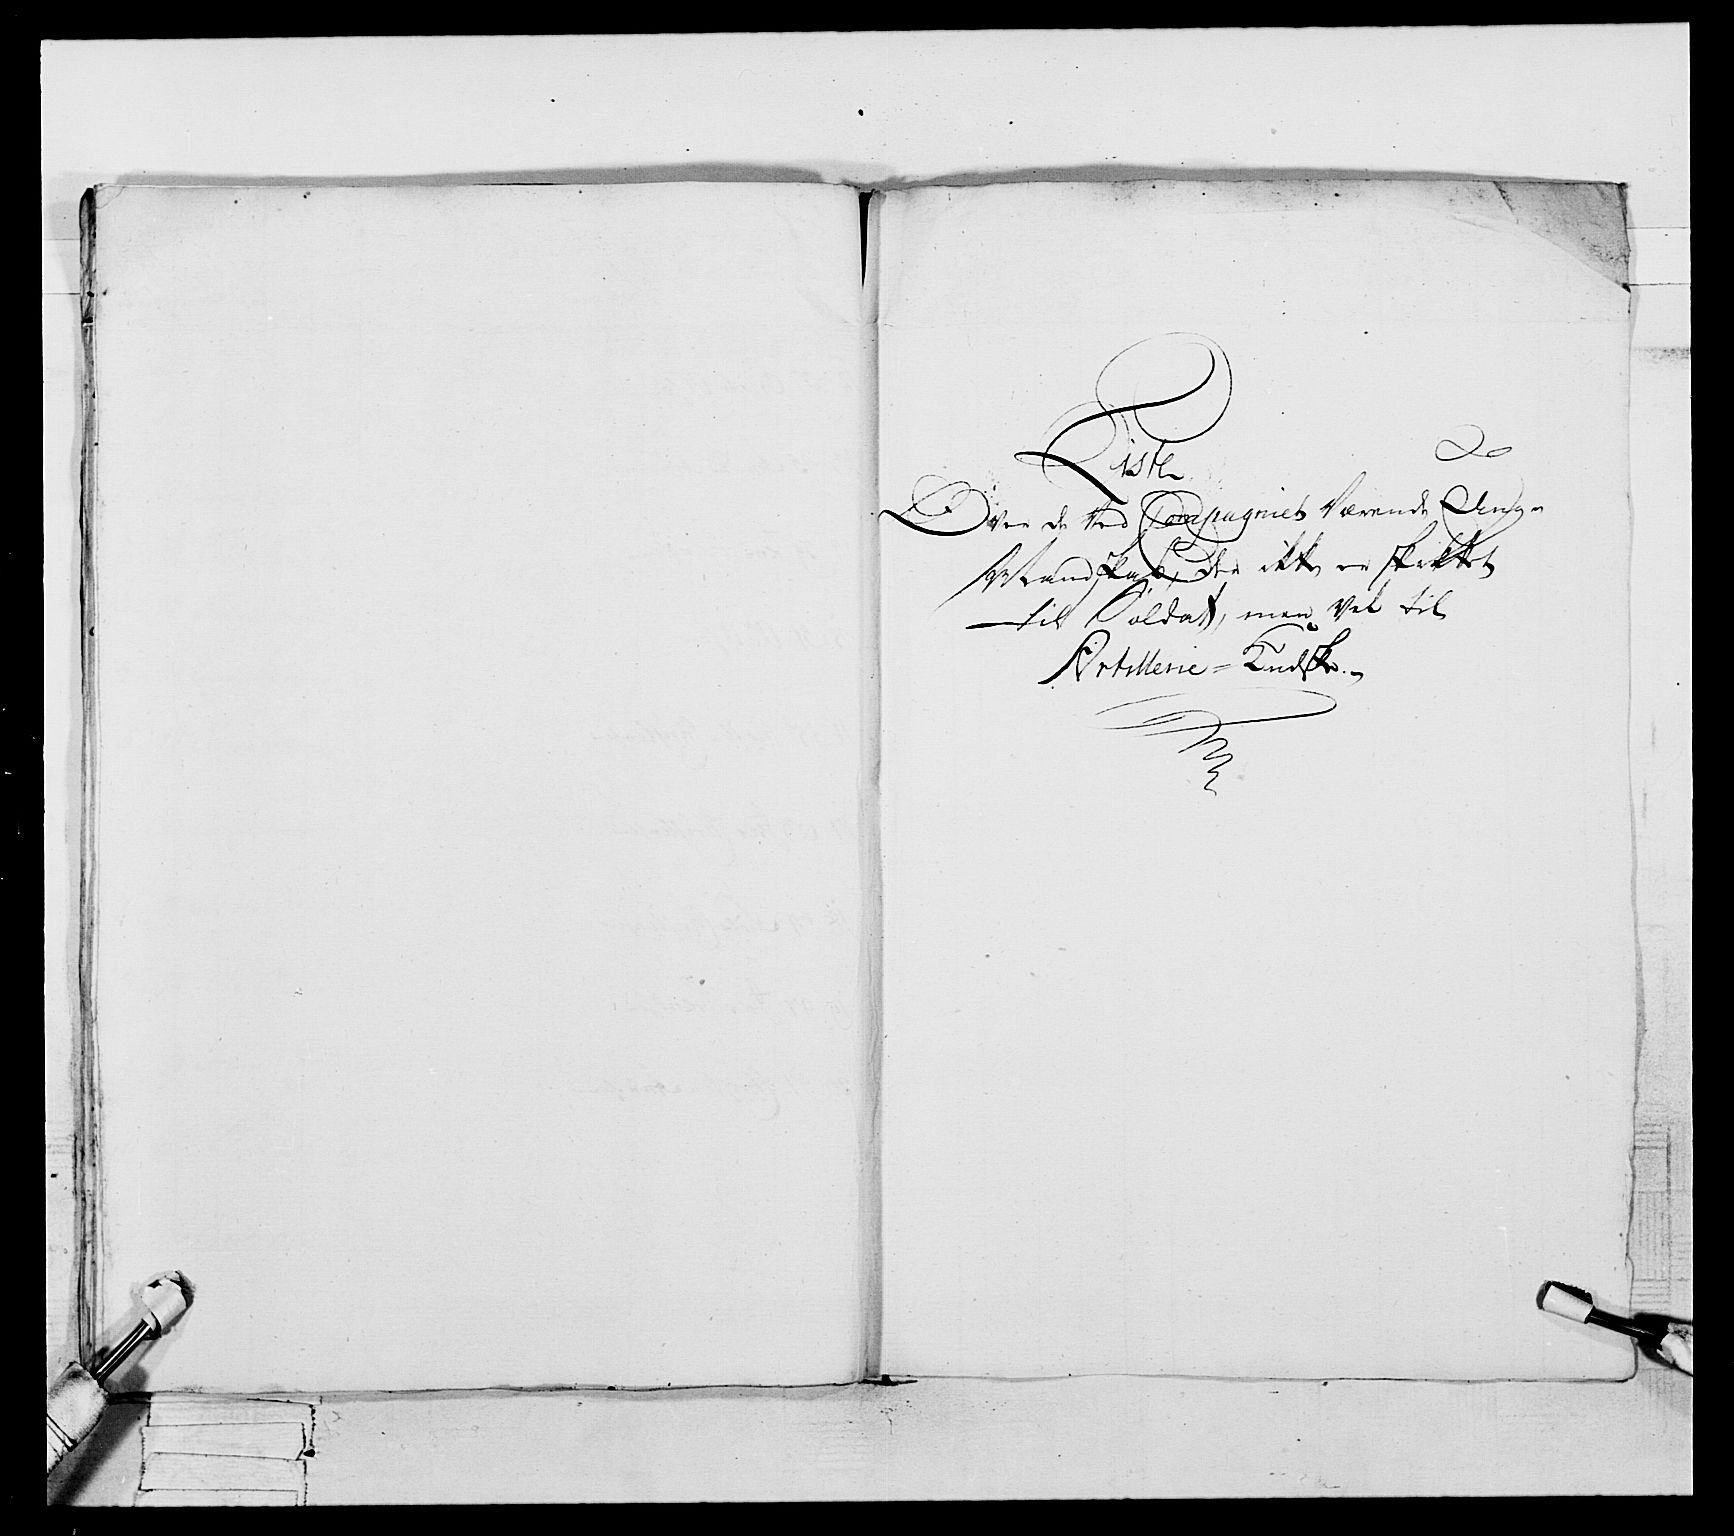 Liste
Over de ved Compagniet Værende Unge
Mandskab, der ikke er skikket
til Soldat, men vel til
Artillerie-Kudske.